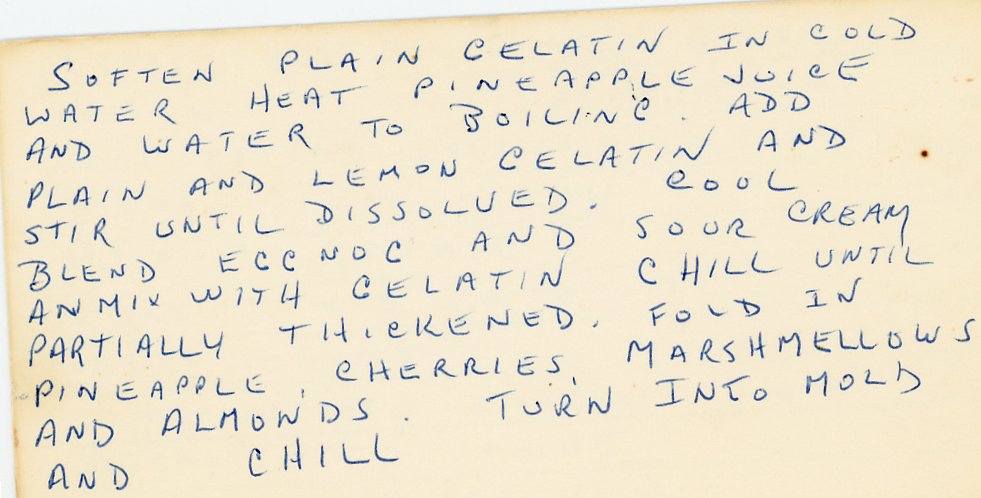 SOFTEN PLAIN GELATIN IN COLD
WATER HEAT PINEAPPLE JUICE
AND WATER TO BOILING. ADD
PLAIN AND LEMON GELATIN AND
STIR UNTIL DISSOLVED. COOL
BLEND EGGNOG AND SOUR CREAM
AN MIX WITH GELATIN CHILL UNTIL
PARTIALLY THICKENED. FOLD IN
PINEAPPLE, CHERRIES, MARSHMELLOWS
AND ALMONDS. TURN INTO MOLD
AND CHILL